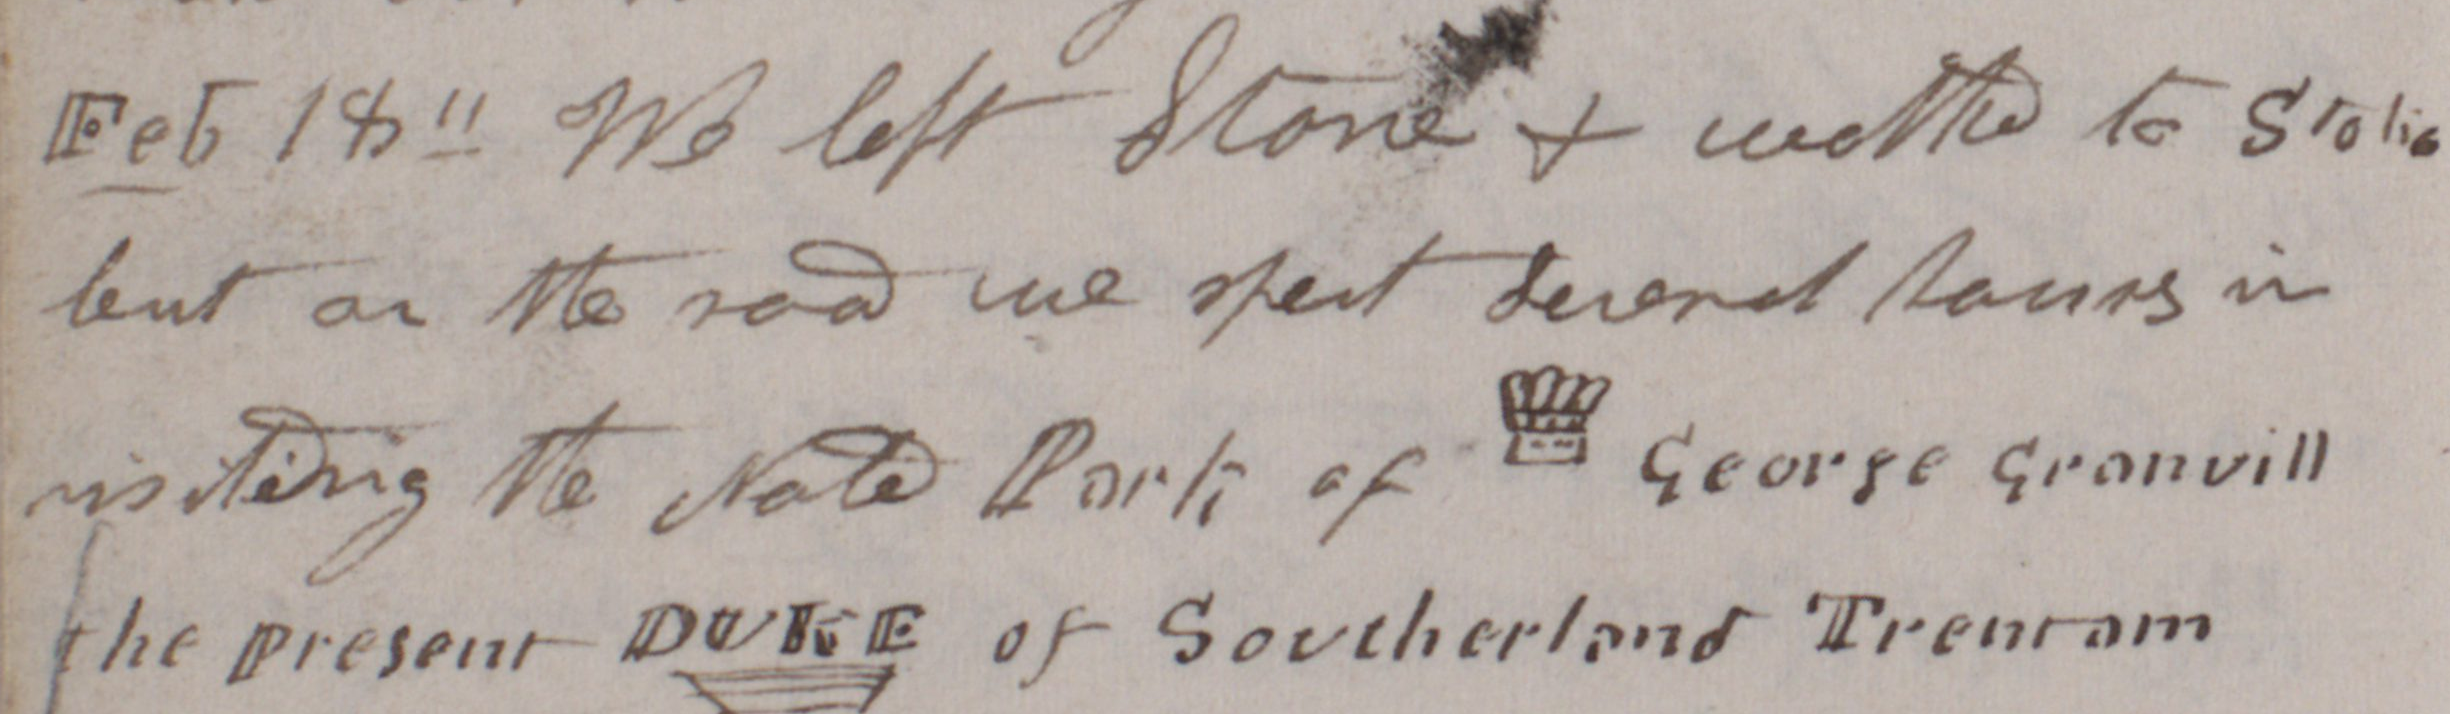 Feb 18" We left Stone & walked to Stoke
but on the road we spent several hours in
visiting the Noted Park of George Granvill
the present DUKE of Southerland Trentam